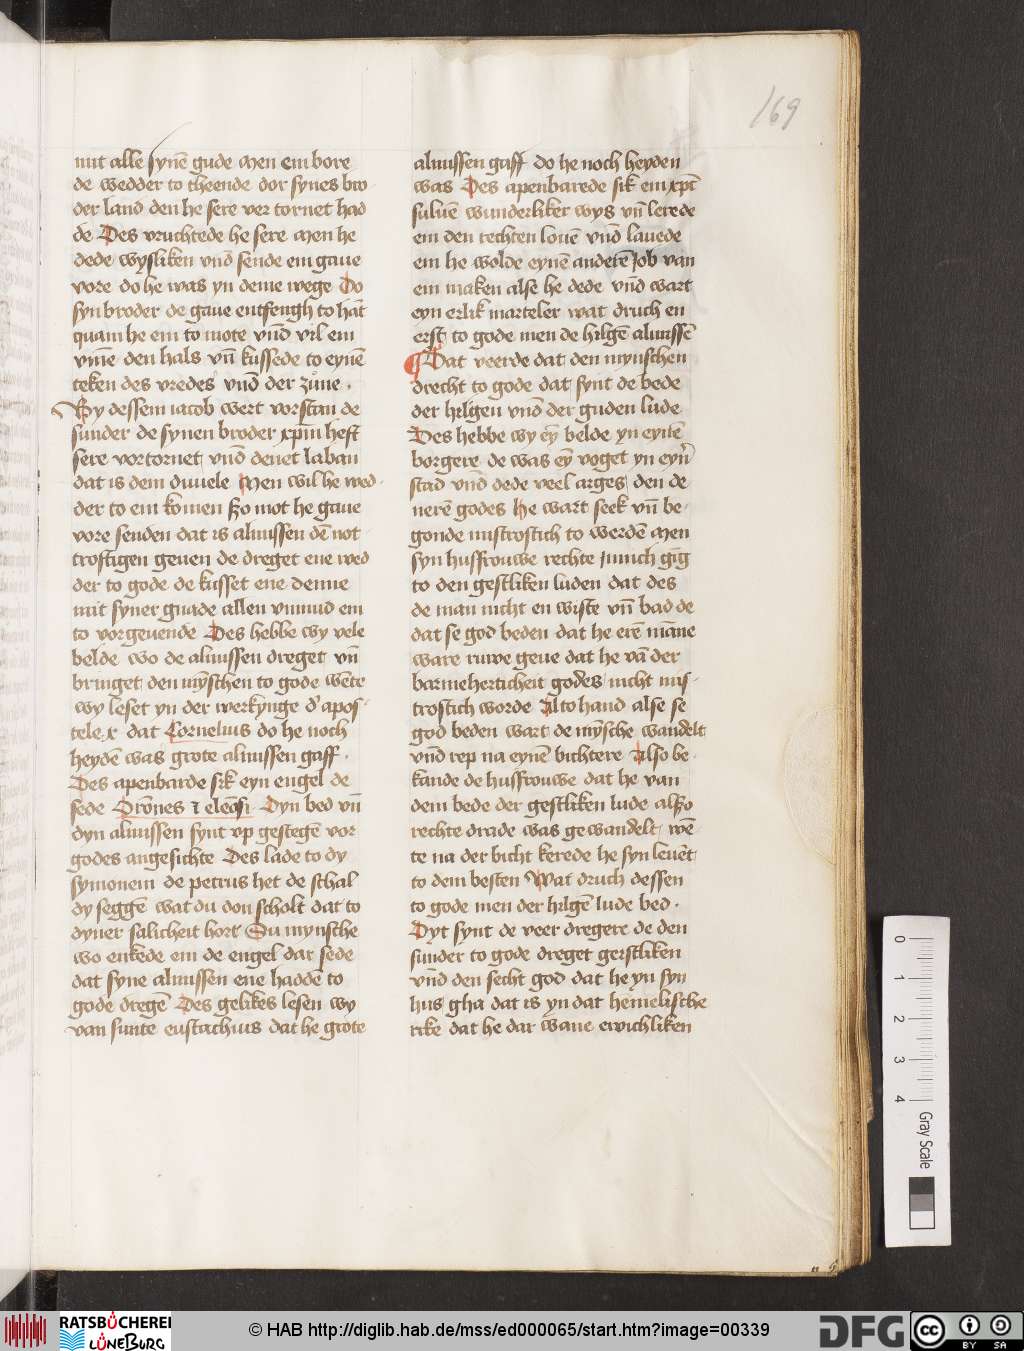 169
mit alle synē gude men em bore
de wedder to theende dor synes bro
der land den he sere vor tornet had
de Des vruchtede he sere men he
dede wysliken vnd sende em gaue
vore do he was yn deme wege Do
syn broder de gaue entfengh to hāt
quam he em to mote vnd vil em
vmme den hals vn̄ kussede to eynē
teken des vredes vnd der zune .
By dessem iacob wert vorstan de
sunder de synen broder xpm̄ heft
sere vortornet vnd denet laban
dat is dem duuele Men wil he wed
der to em komen so mot he gaue
vore senden dat is almissen dē not
troftigen geuen de dreget ene wed
der to gode de kusset ene denne
mit syner gnade allen vnmud em
to vorgeuende Des hebbe wy vele
belde wo de almissen dreget vn̄
bringet den mȳschen to gode wēte
wy leset yn der werkynge d' apos
tele x dat Cornelius do he noch
heydē was grote almissen gaff .
Des apenbarde sik eyn engel de
sede Orōnes t eleōsi Dyn bed vn̄
dyn almissen synt vp gestegē vor
godes angesichte Des lade to dy
symonem de petrus het de schal
dy seggē wat du don scholt dat to
dyner salicheit hort Su mynsche
wo enkede em de engel dar sede
dat syne almissen ene hadde to
gode dregē Des gelikes lesen wy
van sunte eustachius dat he grote
almissen gaff do he noch heyden
was Des apenbarede sik em xpc̄
suluē wunderliker wys vn̄ lerede
em den rechten louē vnd lauede
em he wolde eynē anderē Job van
em maken alse he dede vnd wart
eyn erlik marteler wat druch en
erst to gode men de hilgē almissē
Dat veerde dat den mynschen
drecht to gode dat synt de bede
der hilgen vnd der guden lude
Des hebbe wy ey belde yn eynē
borgere de was ey voget yn eyn'
stad vnd dede veel arges den de
nerē godes He wart seek vn̄ be
gonde mistrostich to werdē men
syn husfrouwe rechte jnnich gīg
to den gestliken luden dat des
de man nicht en wiste vn̄ bad de
dat se god beden dat he erē māne
ware ruwe geue dat he vā der
barmeherticheit godes nicht mis
trostich worde Alto hand alse se
god beden wart de mȳsche wandelt
vnd rep na eynē bichtere Also be
kande de husfrouwe dat he van
dem bede der gestliken lude also
rechte drade was gewandelt wē
te na der bicht kerede he syn leuēt
to dem besten Wat druch dessen
to gode men der hilgē lude bed .
Dyt synt de veer dregere de den
sunder to gode dreget geistliken
vnd den secht god dat he yn syn
hus gha dat is yn dat hemelische
rike dat he dar wane ewichliken
0 1 2 3 4
Gray Scale
RATSBÜCHEREI
LÜNEBURG
© HAB http://diglib.hab.de/mss/ed000065/start.htm?image=00339
DFG
cc BY SA